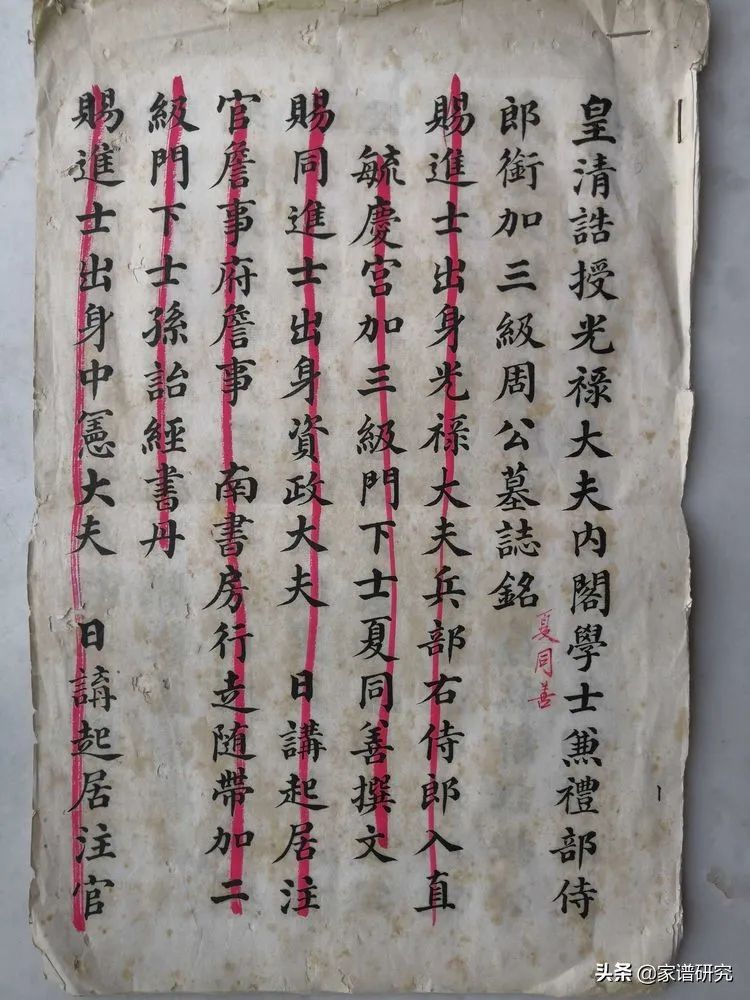 皇清誥授光祿大夫內閣學士兼禮部侍
郎銜加三級周公墓誌銘
夏同善
賜進士出身光祿大夫兵部右侍郎入直
毓慶宮加三級門下士夏同善撰文
賜同進士出身資政大夫 日講起居注
官詹事府詹事 南書房行走隨帶加二
級門下士孫詒經書丹
賜進士出身中憲大夫 日講起居注官
头条 @家谱研究